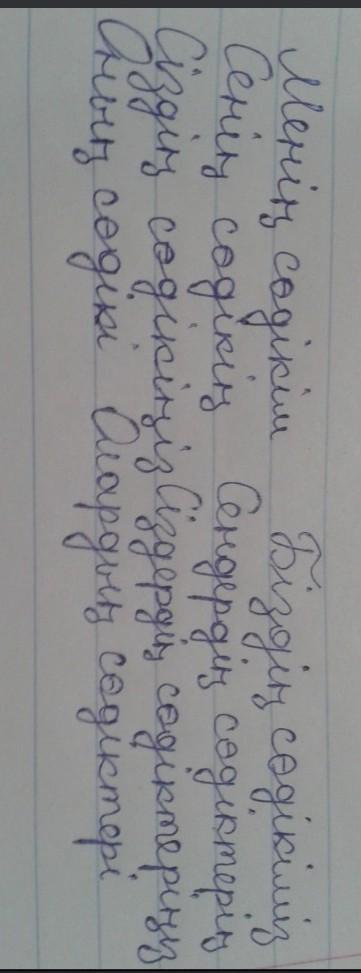 Менің сөдікім Біздің сөдікіміз
Сенің сөдікің Сендердің сөдіктерің
Сіздің сөдікіңіз Сіздердің сөдіктеріңіз
Оның сөдікі Олардың сөдіктері